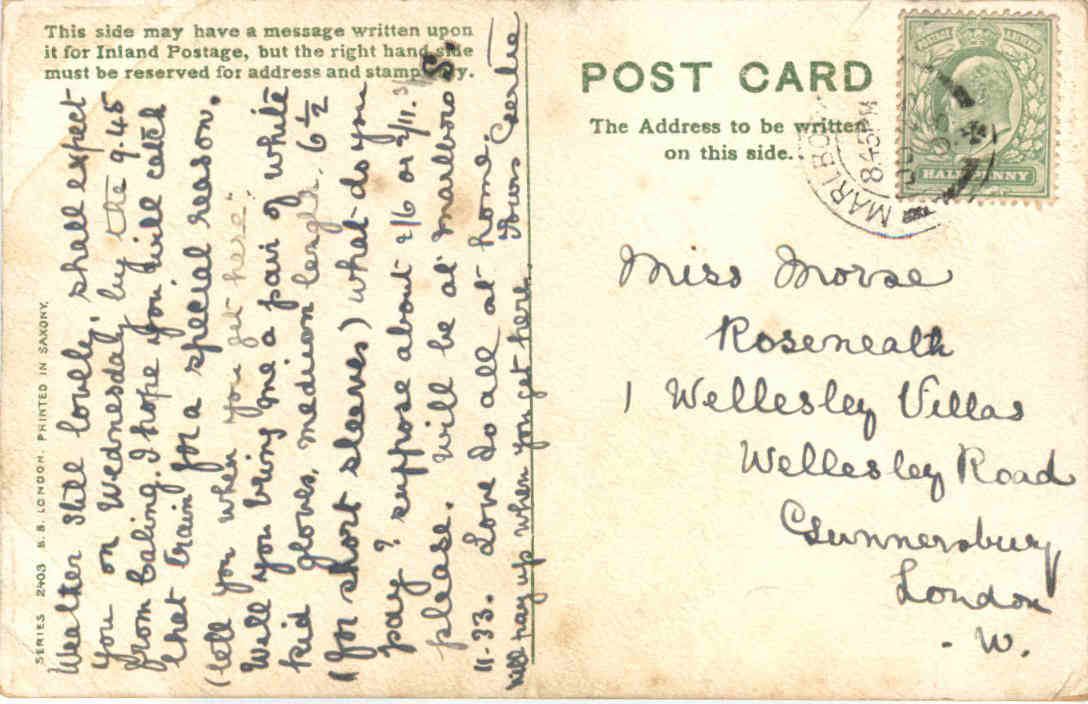 This side may have a message written upon
it for Inland Postage, but the right hand side
must be reserved for address and stamp only.
SERIES 2403 B.B. LONDON. PRINTED IN SAXONY.
Weather still lovely, shall expect
you on Wednesday by the 9.45
from Ealing. I hope you will catch
that train for a special reason.
(tell you when you get here).
Will you bring me a pair of white
kid gloves, medium length, 6½
(for short sleeves) what do you
pay? suppose about 2/6 or 2/11.3
please. Will be at Marlboro
11-33. Love to all at home.
Yours
S.
Will pay up when you get here.
POST CARD
The Address to be written
on this side.
MARLBO
8.45PM
HALFPENNY
Miss Morse
Roseneath
1 Wellesley Villas
Wellesley Road
Gunnersbury
London
- W.